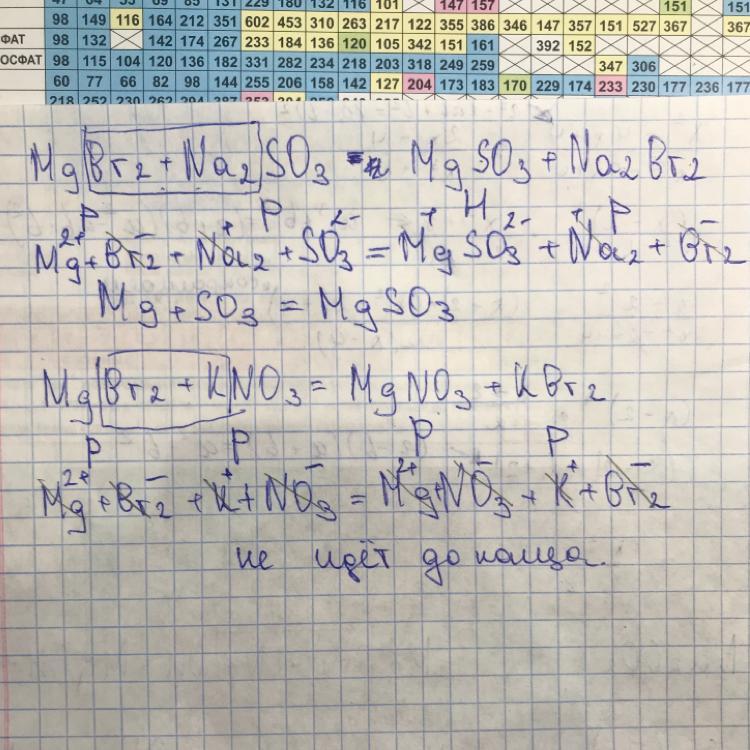 47 64 55 69 85 131 229 180 132 116 101 147 157 151 151
98 149 116 164 212 351 602 453 310 263 217 122 355 386 346 147 357 151 527 367 367
ФАТ 98 132 142 174 267 233 184 136 120 105 342 151 161 392 152
ОСФАТ 98 115 104 120 136 182 331 282 234 218 203 318 249 259 347 306
60 77 66 82 98 144 255 206 158 142 127 204 173 183 170 229 174 233 230 177 236 177
218 252 230 262 294 387
MgBr2 + Na2SO3 = MgSO3 + Na2Br2
P P H P
Mg2+ + Br2- + Na2+ + SO3 2- = Mg+SO3 2- + Na2+ + Br2-
Mg + SO3 = MgSO3
MgBr2 + KNO3 = MgNO3 + KBr2
P P P P
Mg2+ + Br2- + K+ + NO3- = Mg2+ + NO3- + K+ + Br2-
не идёт до конца.